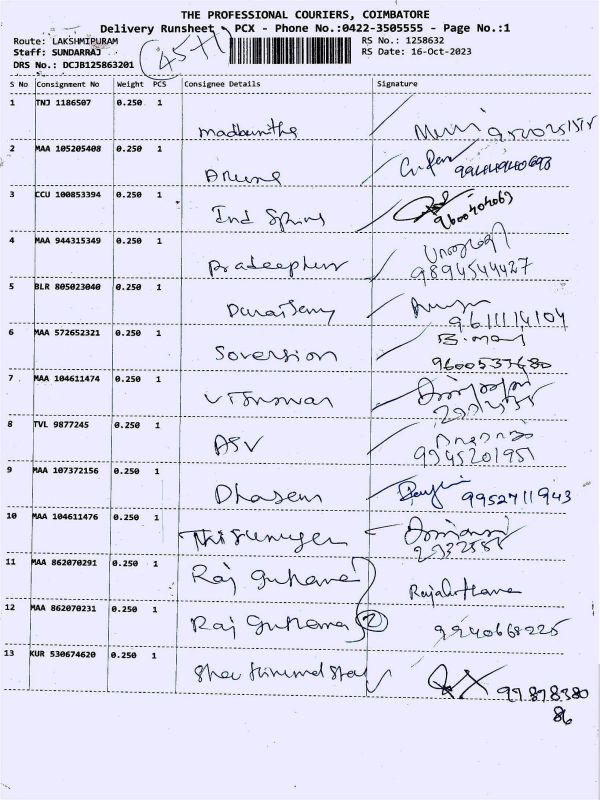 THE PROFESSIONAL COURIERS, COIMBATORE
Delivery Runsheet - PCX - Phone No.:0422-3505555 - Page No.:1
Route: LAKSHMIPURAM RS No.: 1258632
Staff: SUNDARRAJ RS Date: 16-Oct-2023
DRS No.: DCJB125863201
S No Consignment No Weight PCS Consignee Details Signature
1 TNJ 1186507 0.250 1
2 MAA 105205408 0.250 1
Aruna
3 CCU 100853394 0.250 1
Ind Spring 9600404069
4 MAA 944315349 0.250 1
9894544427
5 BLR 805023040 0.250 1
Duraisamy
9611114104
6 MAA 572652321 0.250 1
Soversion 9600537680
7 MAA 104611474 0.250 1
Viswnar
8 TVL 9877245 0.250 1
ASV 9945201951
9 MAA 107372156 0.250 1
9952711943
10 MAA 104611476 0.250 1
11 MAA 862070291 0.250 1
Raj Guhana
12 MAA 862070231 0.250 1
Raj Guhana 2 9940668225
13 KUR 530674620 0.250 1
99878380
86